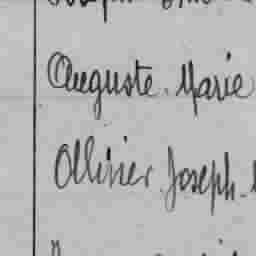 Auguste. Marie
Ollivier. Joseph.